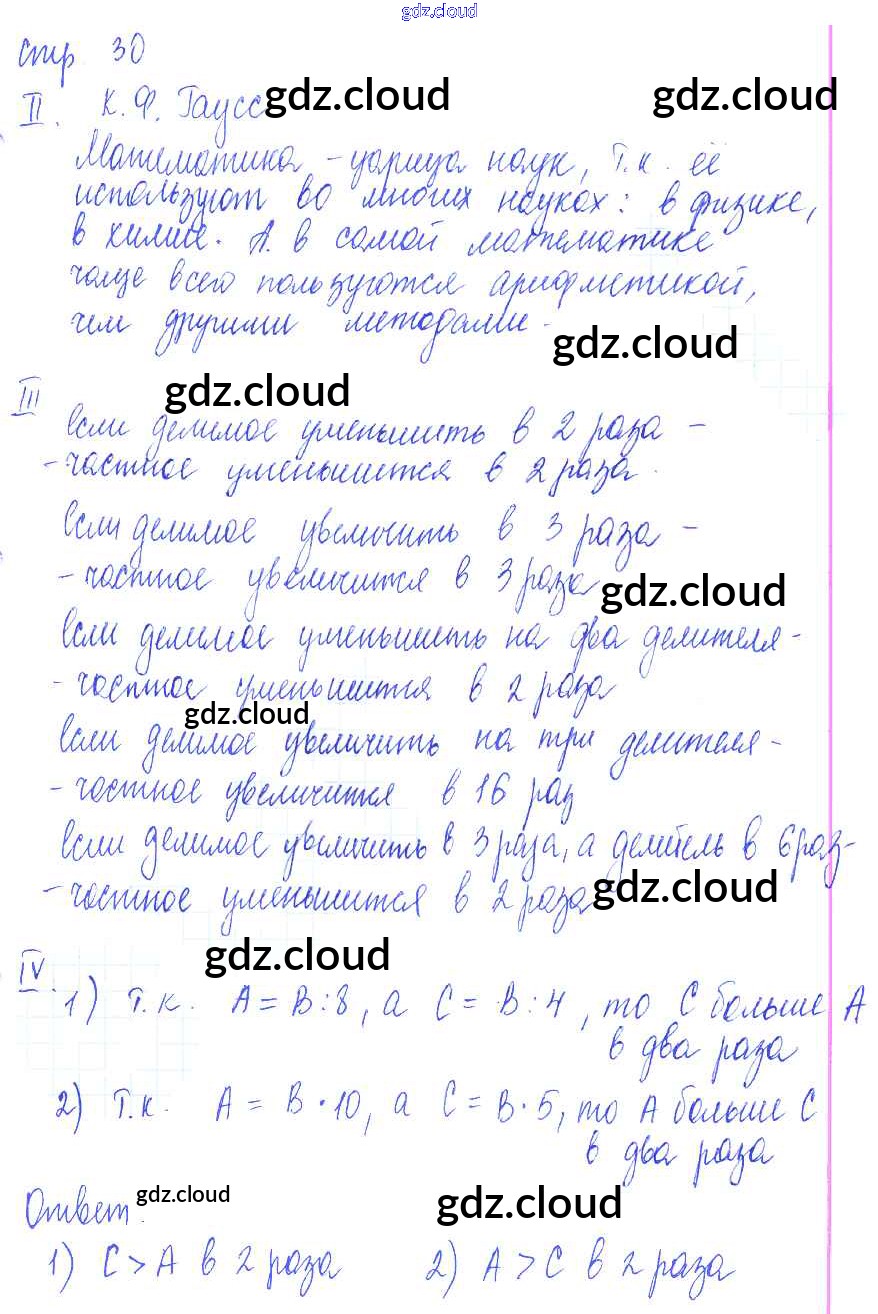 gdz.cloud
стр 30
II. К. Ф. Гаусс gdz.cloud gdz.cloud
Математика - царица наук, т.к. её
используют во многих науках: в физике,
в химие. А. в самой математике
чаще всего пользуются арифметикой,
чем другими методами.
gdz.cloud
III gdz.cloud
Если делимое уменьшить в 2 раза -
- частное уменьшится в 2 раза.
Если делимое увеличить в 3 раза -
- частное увеличится в 3 раза gdz.cloud
Если делимое уменьшить на два делителя -
- частное уменьшится в 2 раза
gdz.cloud
Если делимое увеличить на три делителя -
- частное увеличится в 16 раз
Если делимое увеличить в 3 раза, а делитель в 6 раз -
- частное уменьшится в 2 раза gdz.cloud
gdz.cloud
IV. 1) Т.к. А = В:8, а С = В:4, то С больше А
в два раза
2) Т.к. А = В·10, а С = В·5, то А больше С
в два раза
Ответ: gdz.cloud gdz.cloud
1) С > А в 2 раза 2) А > С в 2 раза